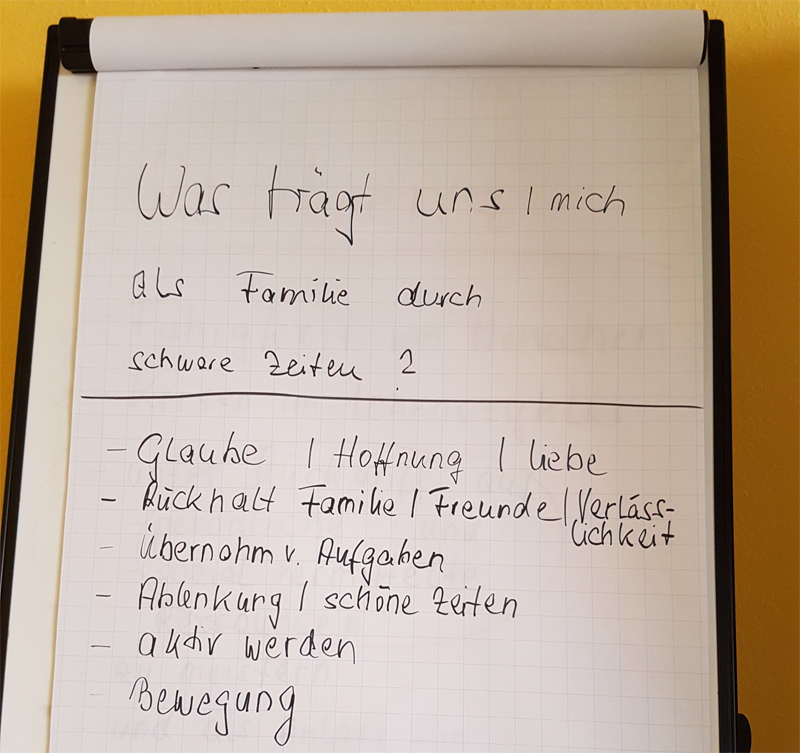 Was trägt uns / mich
als Familie durch
schwere Zeiten ?
- Glaube / Hoffnung / liebe
- Rückhalt Familie / Freunde / Verläss-
lichkeit
- Übernohm v. Aufgaben
- Ablenkung / schöne Zeiten
- aktiv werden
- Bewegung